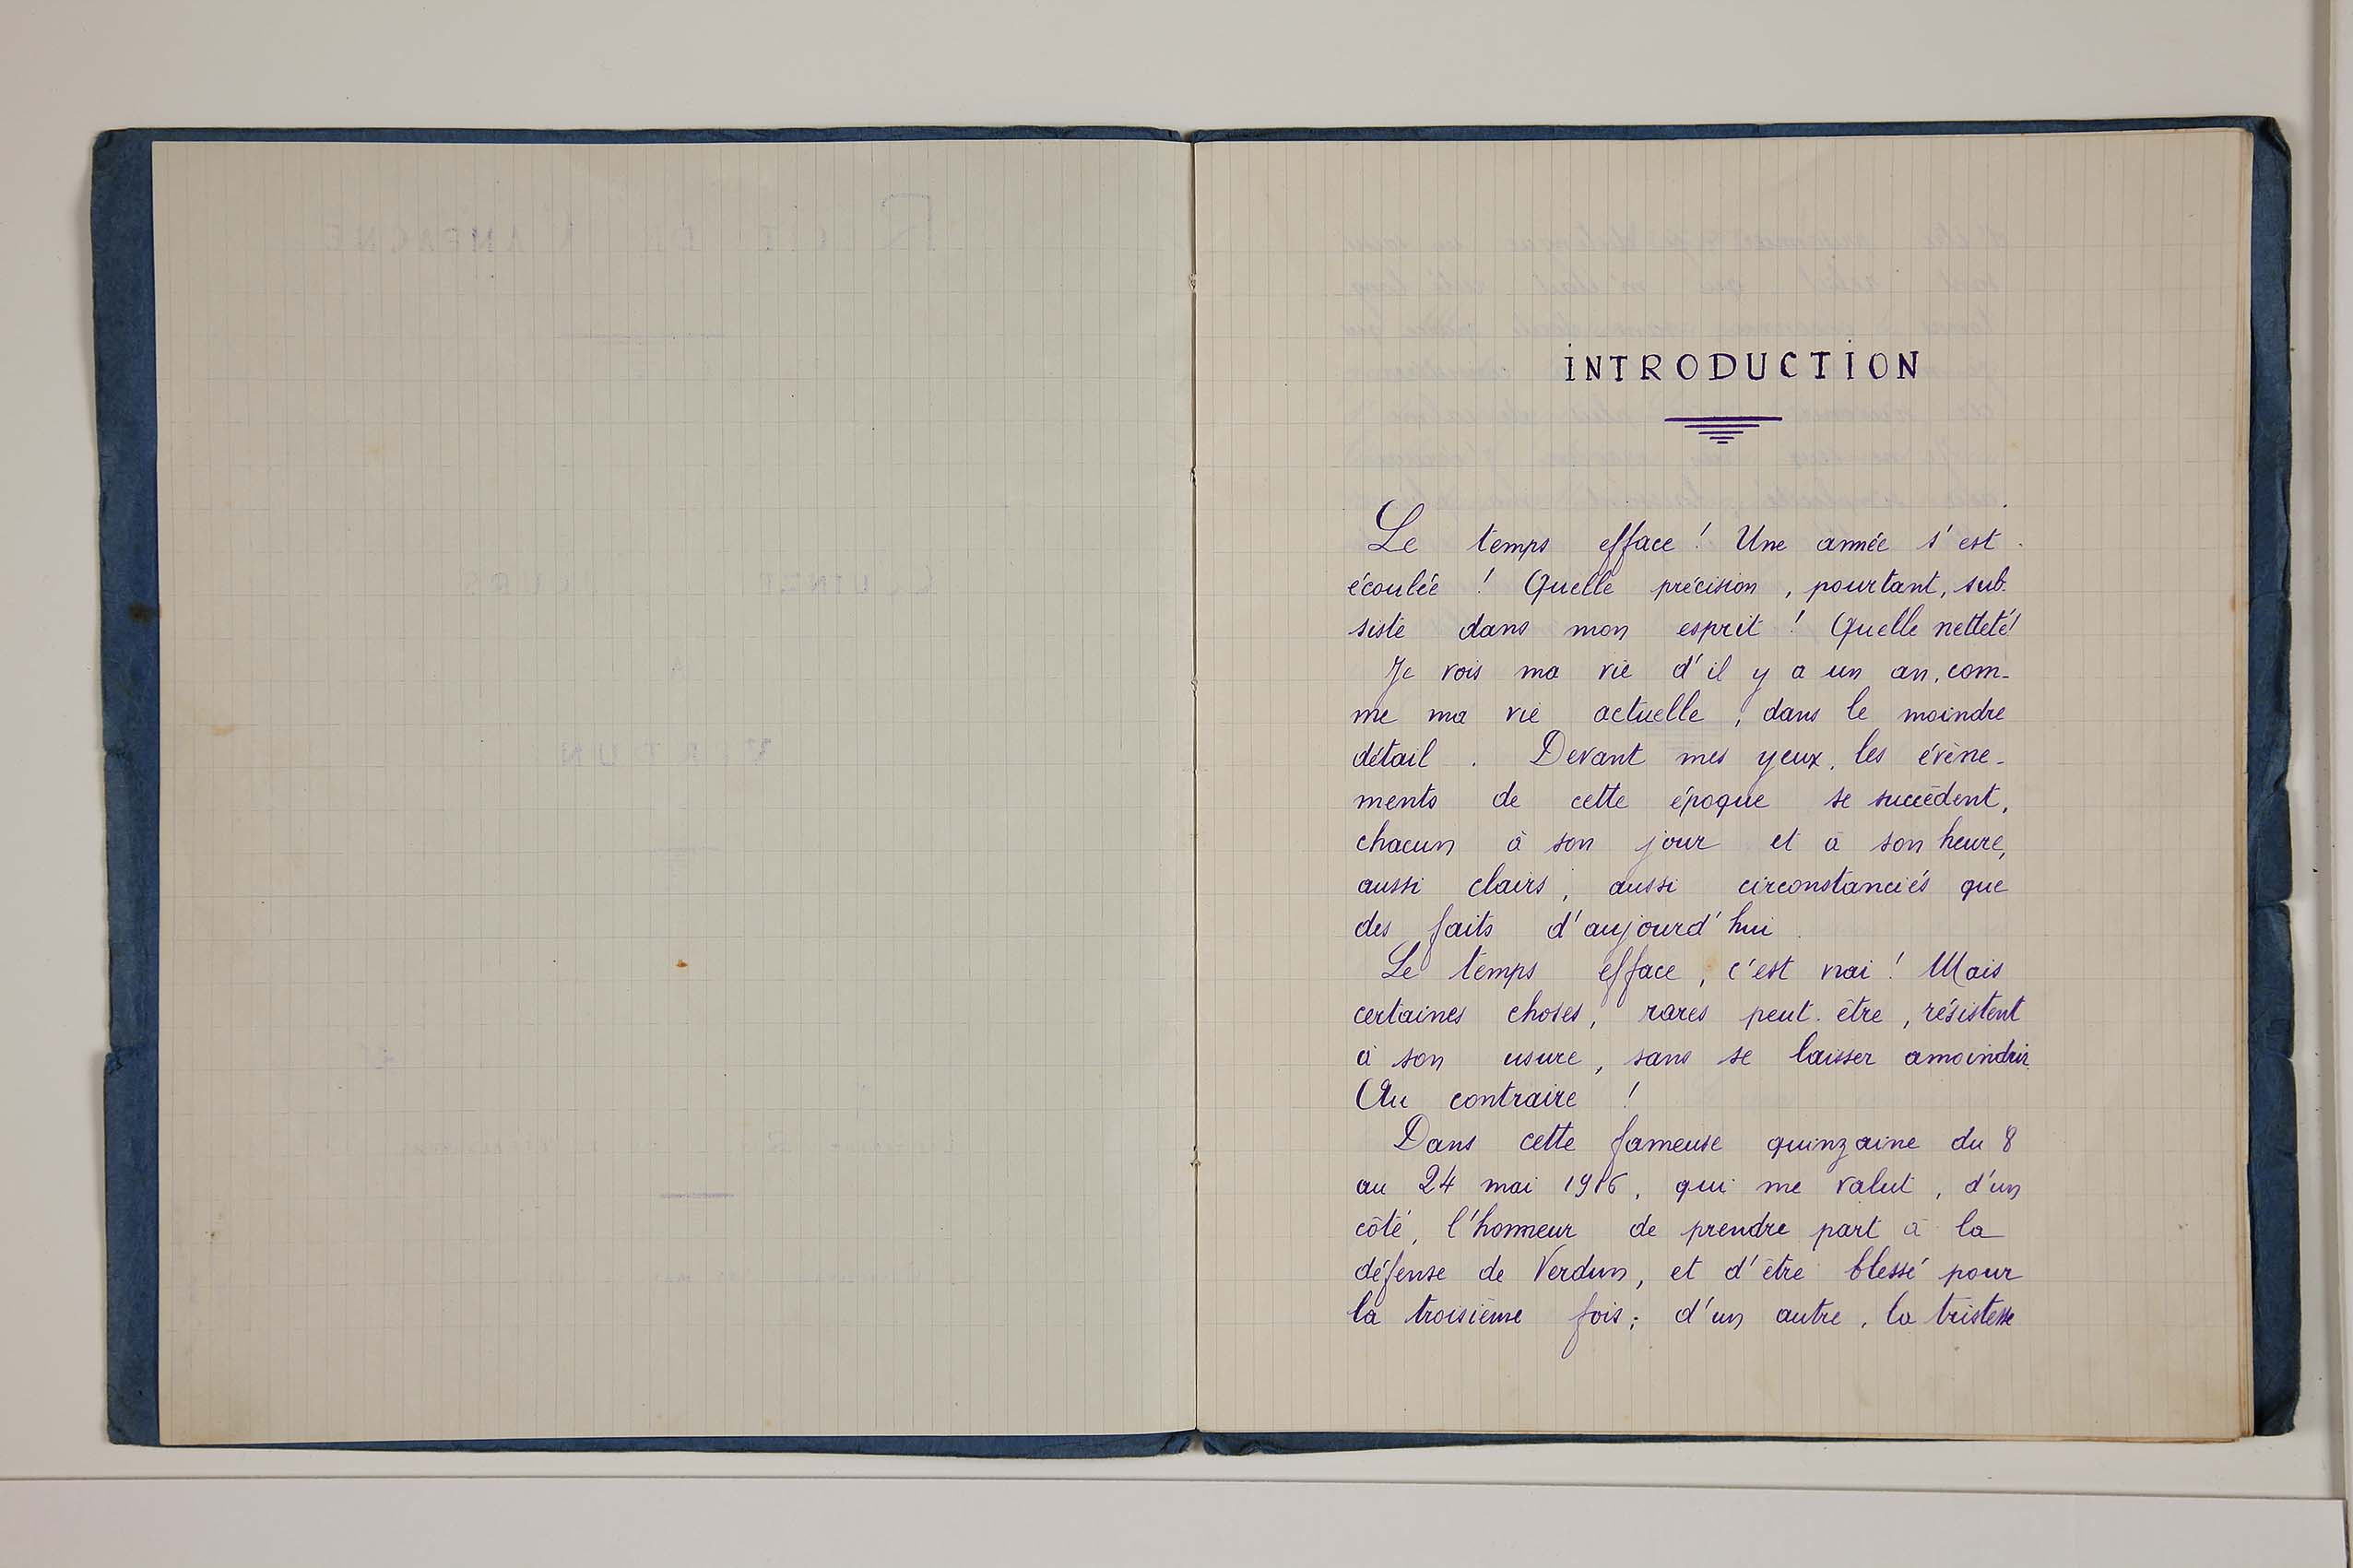 INTRODUCTION
Le temps efface ! Une année s'est
écoulée ! Quelle précision, pourtant, sub-
siste dans mon esprit ! Quelle netteté !
Je vois ma vie d'il y a un an, com-
me ma vie actuelle, dans le moindre
détail. Devant mes yeux, les évène-
ments de cette époque se succèdent,
chacun à son jour et à son heure,
aussi clairs, aussi circonstanciés que
des faits d'aujourd'hui.
Le temps efface, c'est vrai ! Mais
certaines choses, rares peut-être, résistent
à son usure, sans se laisser amoindrir.
Au contraire !
Dans cette fameuse quinzaine du 8
au 24 mai 1916, qui me valut, d'un
côté, l'honneur de prendre part à la
défense de Verdun, et d'être blessé pour
la troisième fois ; d'un autre, la tristesse